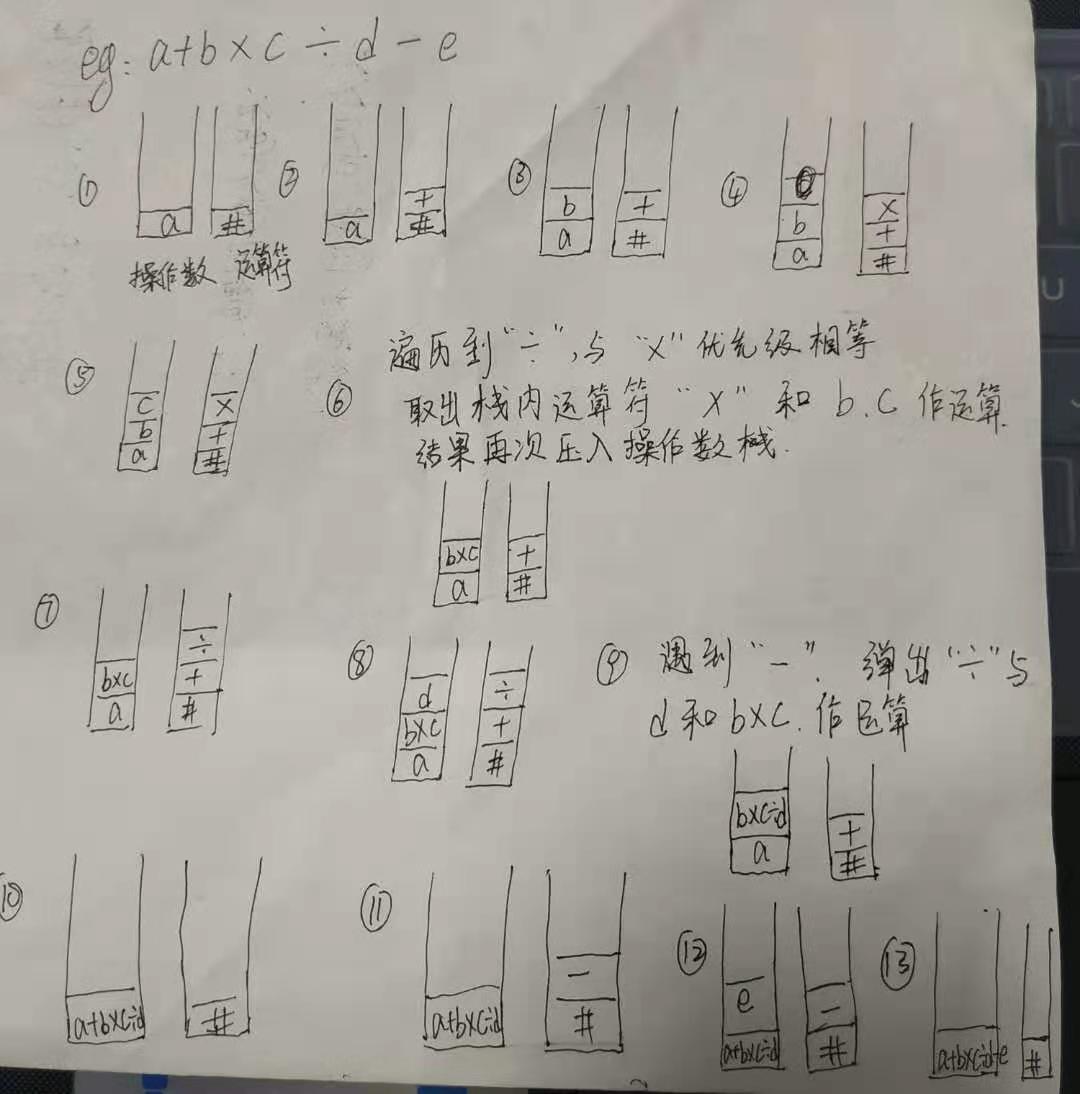 eg: a+b×c÷d-e
①
a
#
操作数 运算符
②
a
+
#
③
b
a
+
#
④
b
a
×
+
#
⑤
c
b
a
×
+
#
⑥
遍历到"÷",与"×"优先级相等
取出栈内运算符"×"和b.c作运算
结果再次压入操作数栈.
b×c
a
+
#
⑦
b×c
a
÷
+
#
⑧
d
b×c
a
÷
+
#
⑨ 遇到"-". 弹出"÷"与
d和b×c.作运算
b×c÷d
a
+
#
⑩
a+b×c÷d
#
⑪
a+b×c÷d
-
#
⑫
e
a+b×c÷d
-
#
⑬
a+b×c÷d-e
#